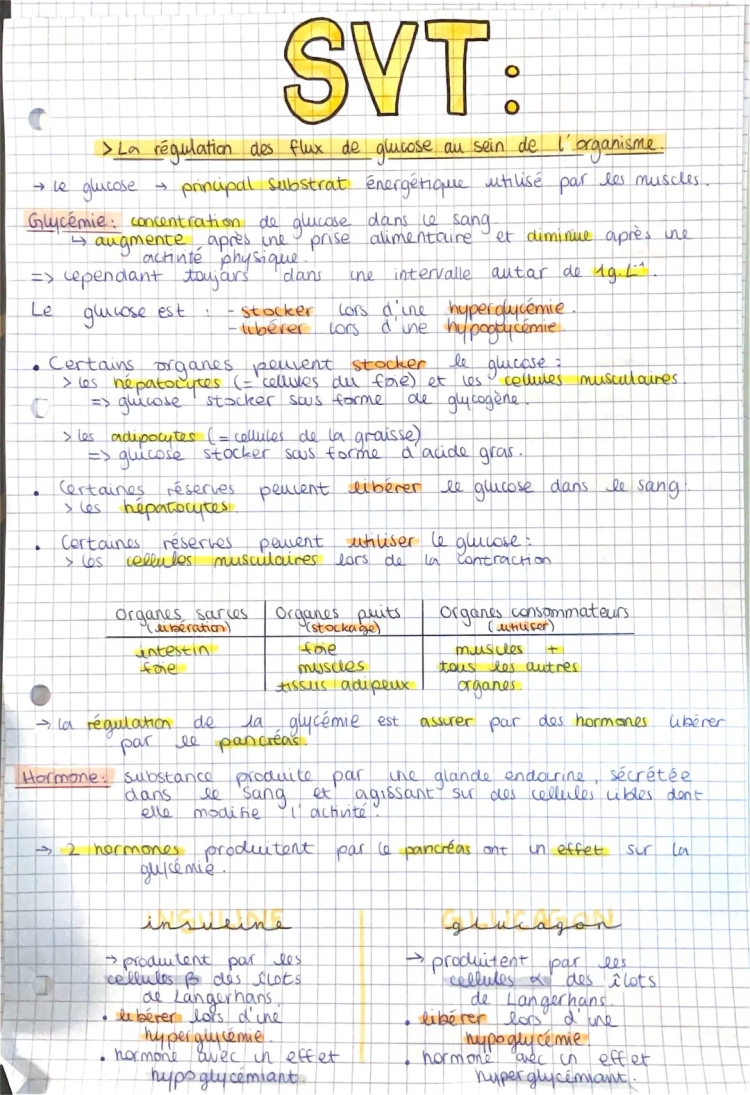 SVT:
> La régulation des flux de glucose au sein de l'organisme.
→ le glucose → principal substrat énergétique utilisé par les muscles.
Glycémie: concentration de glucose dans le sang.
↳ augmente après une prise alimentaire et diminue après une
activité physique.
=> cependant toujours dans une intervalle autour de 1g.L⁻¹.
Le glucose est : - stocker lors d'une hyperglycémie.
- libérer lors d'une hypoglycémie.
• Certains organes peuvent stocker le glucose :
> les hépatocytes (= cellules du foie) et les cellules musculaires.
=> glucose stocker sous forme de glycogène.
> les adipocytes (= cellules de la graisse)
=> glucose stocker sous forme d'acide gras.
• Certaines réserves peuvent libérer le glucose dans le sang:
> les hépatocytes.
• Certaines réserves peuvent utiliser le glucose :
> les cellules musculaires lors de la contraction
Organes sources | Organes puits | Organes consommateurs
(libération) | (stockage) | (utiliser)
intestin | foie | muscles +
foie | muscles | tous les autres
tissus adipeux | organes.
→ la régulation de la glycémie est assurer par des hormones libérer
par le pancréas.
Hormone: substance produite par une glande endocrine, sécrétée
dans le sang et agissant sur des cellules cibles dont
elle modifie l'activité.
→ 2 hormones produitent par le pancréas ont un effet sur la
glycémie.
INSULINE GLUCAGON
insuline glucagon
→ produitent par les
cellules β des îlots
de Langerhans.
• libérer lors d'une
hyperglycémie.
• hormone avec un effet
hypoglycémiant.
→ produitent par les
cellules α des îlots
de Langerhans.
• libérer lors d'une
hypoglycémie
• hormone avec un effet
hyperglycémiant.